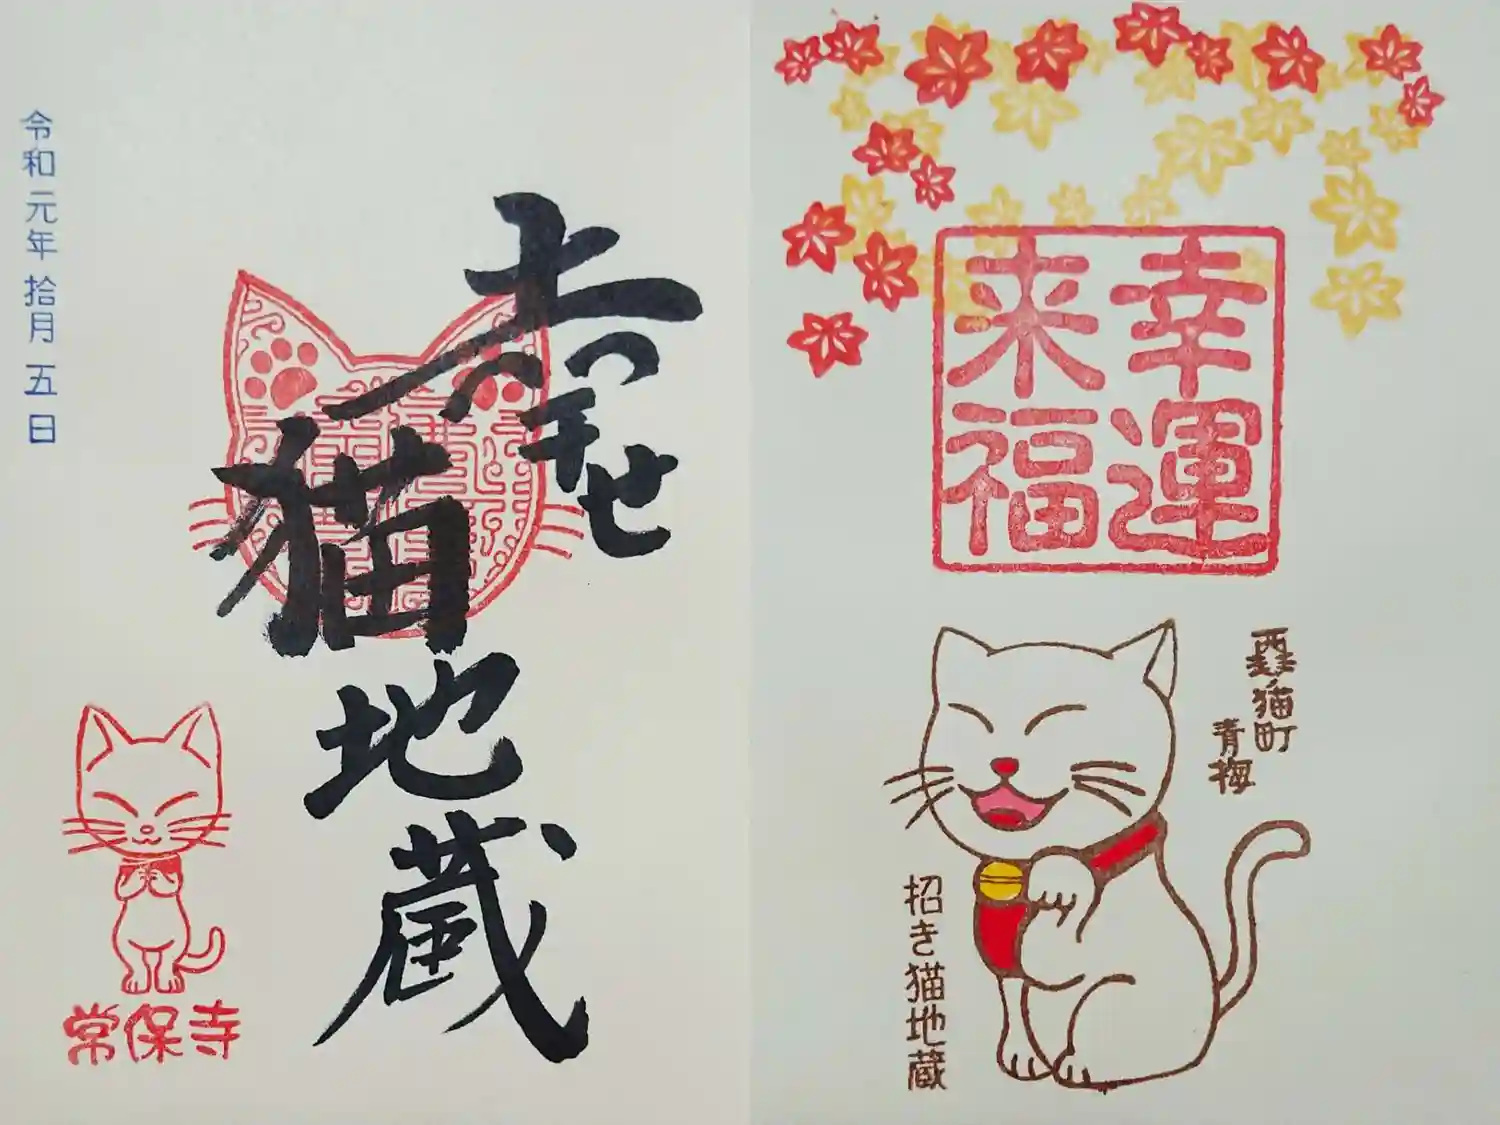 令和元年拾月五日
幸せ
猫地蔵
常保寺
幸運
来福
猫町
青梅
招き猫地蔵